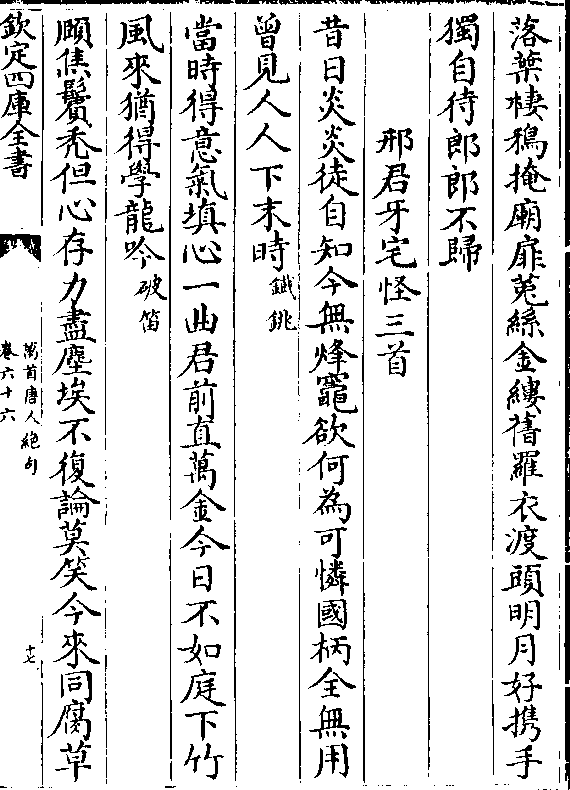 落葉棲鴉掩廟扉菟絲金縷舊羅衣渡頭明月好携手
獨自待郎郎不歸
邢君牙宅怪三首
昔日炎炎徒自知今無烽竈欲何為可憐國柄全無用
曾見人人下末時鐵銚
當時得意氣填心一曲君前直萬金今日不如庭下竹
風來猶得學龍吟破笛
頭焦鬢禿但心存力盡塵埃不復論莫笑今來同腐草
欽定四庫全書
萬首唐人絶句
卷六十六
十七